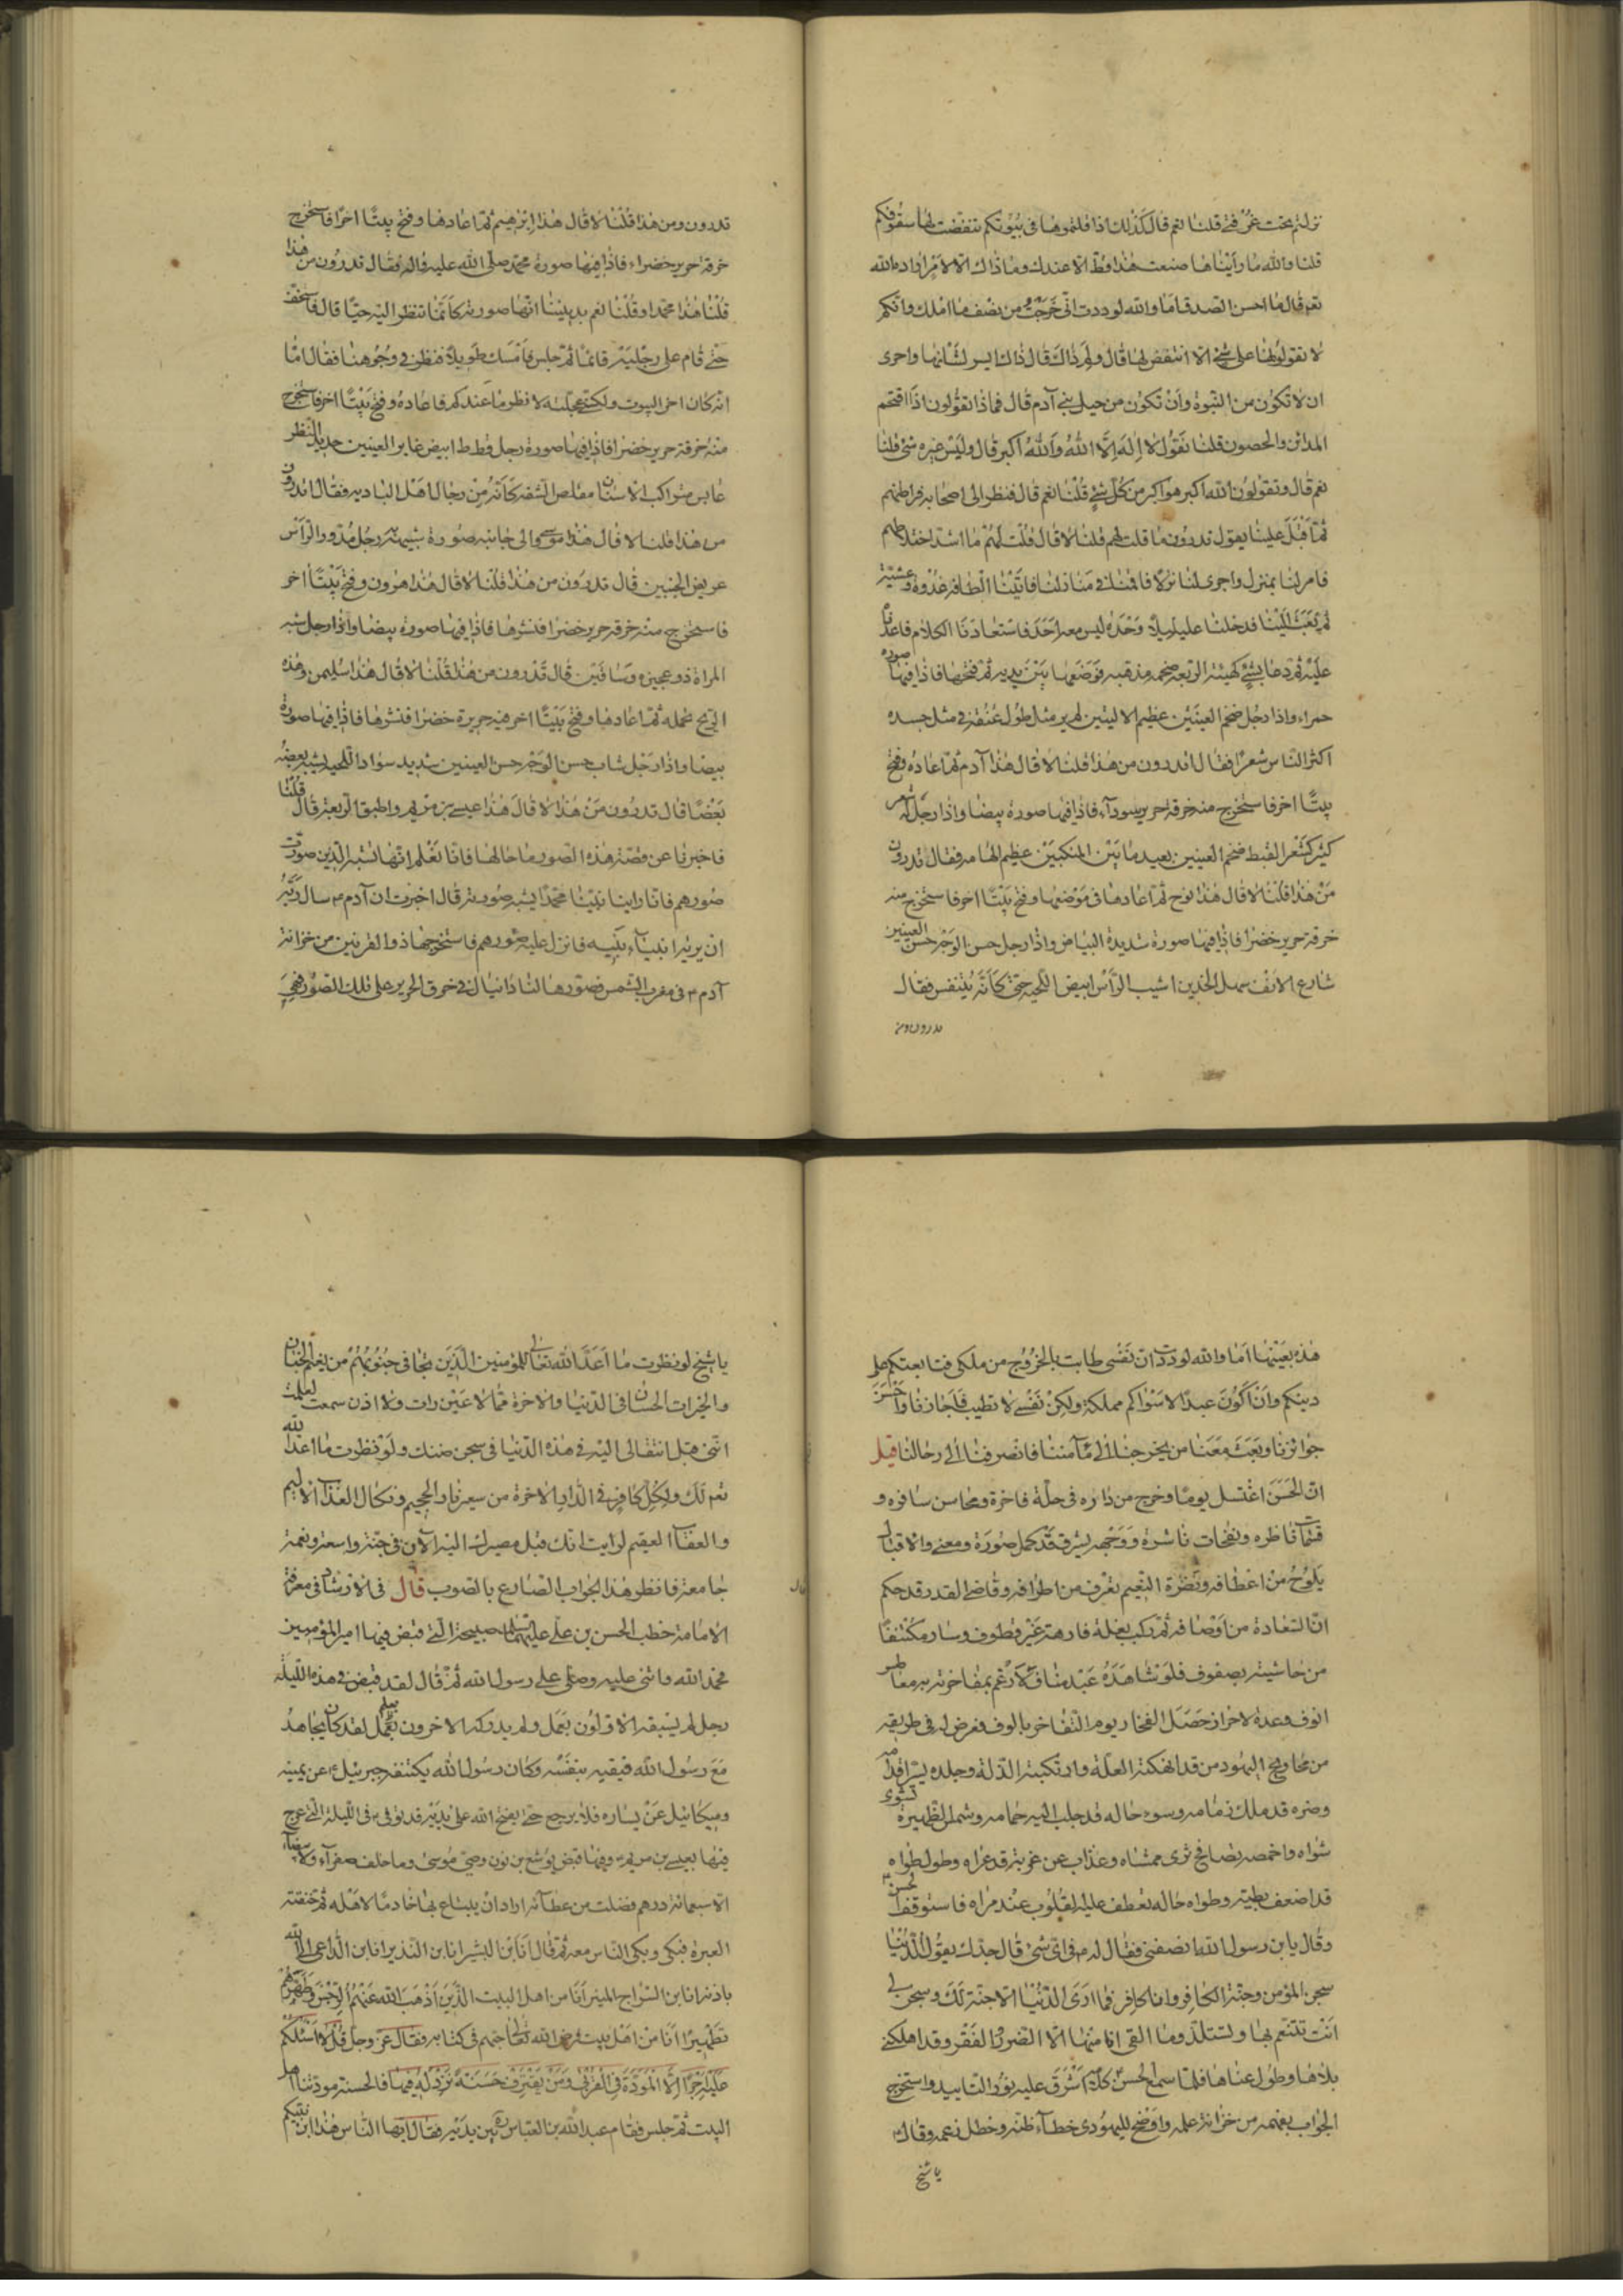 نزلتم تحت غرفتي قلنا نعم قال كذلك اذا قلتموها في بيوتكم تنقضت لها سقوفكم
قلنا والله ما رأيناها صنعت هذا قط الا عندك وما ذاك الا لامر اراده الله
تعم قال ما احسن الصدق اما والله لوددت اني خرجت من نصف ما املك وانكم
لا تقولونها على شيء الا انتقض لها قال ولم ذاك قال ذاك ايسر لشأنها واحرى
ان لا تكون من النبوة وان تكون من حيل بني آدم قال فماذا تقولون اذا فتحتم
المدائن والحصون قلنا نقول لا اله الا الله والله اكبر قال وليس غيره شئ قلنا
نعم قال وتقولون الله اكبر هو اكبر من كل شئ قلنا نعم قال فنظر الى اصحابه فراطنهم
ثم اقبل علينا يقول تدرون ما قلت لهم قلنا لا قال قلت لهم ما اشد اختلاطهم
فامر لنا بمنزل واجرى لنا نزلا فاقمنا في منازلنا فاتتنا الطافه غدوة وعشية
ثم بعث الينا فدخلنا عليه ليلا وحده ليس معه احد فاستعادنا الكلام فاعدنا
عليه ثم دعا بشئ كهيئة الربعة ضخمة مذهبة فوضعها بين يديه ثم فتحها فاذا فيها صورة
حمراء واذا رجل ضخم العينين عظيم الاليتين لم ير مثل طول عنقه في مثل جسده
اكثر الناس شعرا فقال اتدرون من هذا قلنا لا قال هذا آدم ثم اعاده وفتح
بيتا اخر فاستخرج منه خرقة حرير سوداء فاذا فيها صورة بيضا واذا رجل له شعر
كثير كشعر القبط ضخم العينين بعيد ما بين المنكبين عظيم الهامة فقال تدرون
من هذا قلنا لا قال هذا نوح ثم اعادها في موضعها وفتح بيتا اخر فاستخرج منه
خرقة حرير خضرا فاذا فيها صورة شديدة البياض واذا رجل حسن الوجه حسن العينين
شارع الانف سهل الخدين اشيب الرأس ابيض اللحية حتى كأنه يتنفس فقال
تدرون ومن
تدرون ومن هذا قلنا لا قال هذا ابرهيم ثم اعادها وفتح بيتا اخر فاستخرج
خرقة حرير خضراء فاذا فيها صورة محمد صلى الله عليه واله فقال تدرون من هذا
قلنا هذا محمد وقلنا نعم بديننا انها صورته كأنما تنظر اليه حيا قال فاستخف
حتى قام على رجليه قائما ثم جلس فأمسك طويلا فنظر في وجوهنا فقال اما
انه كان اخر البيوت ولكني عجلته لانظر ما عندكم فاعاده وفتح بيتا اخر فاستخرج
منه خرقة حرير خضرا فاذا فيها صورة رجل قطط ابيض غاير العينين حديد النظر
عابس متراكب الاسنان مقلص الشفة كأنه من رجال اهل البادية فقال اتدرون
من هذا قلنا لا قال هذا موسى والى جانبه صورة شبيهة به رجل مدور الرأس
عريض الجبين قال تدرون من هذا قلنا لا قال هذا هرون وفتح بيتا اخر
فاستخرج منه خرقة حرير خضرا فنشرها فاذا فيها صورة بيضا واذا رجل شبه
المراة ذو عجيزة وساقين قال تدرون من هذا قلنا لا قال هذا سليمن وهذه
الريح تحمله ثم اعادها وفتح بيتا اخر فيه حريرة خضرا فنشرها فاذا فيها صورة
بيضا واذا رجل شاب حسن الوجه حسن العينين شديد سواد اللحية يشبه بعضه
بعضا قال تدرون من هذا قلنا لا قال هذا عيسى بن مريم واطبق الربعة قال قلنا
فاخبرنا عن قصة هذه الصور ما حالها فانا نعلم انها تشبه الذين صورت
صورهم فانا راينا نبينا محمدا يشبه صورته قال اخبرت ان آدم ع سال ربه
ان يريه انبياء بنيه فانزل عليه صورهم فاستخرجها ذو القرنين من خزانة
آدم ع في مغرب الشمس فصورها لنا دانيال في خرق الحرير على تلك الصور فهي
هذه بعينها اما والله لوددت ان نفسي طابت بالخروج من ملكي فتابعتكم على
دينكم وان اكون عبدا لاسواكم مملكة ولكن نفسي لا تطيب فاجازنا واحسن
جوائزنا وبعث معنا من يخرجنا الى مأمننا فانصرفنا الى رحالنا قيل
ان الحسن اغتسل يوما وخرج من داره في حلة فاخرة ومحاسن سافرة و
قسمات ناظرة ونفحات ناشرة ووجهه يشرق قد كمل صورة ومعنى والاقبال
يلوح من اعطافه ونضرة النعيم تعرف من اطرافه وقاضي القدر قد حكم
ان السعادة من اوصافه ثم ركب بغلة فارهة غير قطوف وسار مكتنفا
من حاشيته بصفوف فلو شاهده عبد مناف لارغم بمفاخرته به معاطس
انوف وعده لاحراز حصل الفخار يوم التفاخر بالوف فعرض له في طريقه
من محاويج اليهود من قد انهكته العلة وارتكبته الذلة وجلده يستر
وضره قد ملك زمامه وسوء حاله قد جلب اليه حمامه وشمس الظهيرة تشوى
شواه واخمصه تصافح ثرى ممشاه وعذاب عن عريه قد عراه وطول طواه
قد اضعف بطنه وطواه حاله تعطف عليه القلوب عند مراه فاستوقف الحسن ع
وقال يا بن رسول الله انصفني فقال له ع في اي شئ قال جدك يقول الدنيا
سجن المؤمن وجنة الكافر وانا كافر فما ارى الدنيا الا جنة لك وسجن لي
انت تتنعم بها وتستلذ وما القى انا منها الا الضر والفقر وقد اهلكني
بلاءها وطول عناها فلما سمع الحسن كلامه اشرق عليه نور التاييد واستخرج
الجواب بفهمه من خزانة علمه واوضح لليهودى خطآء ظنه وخطل زعمه وقال ع
يا شيخ
يا شيخ لو نظرت ما اعد الله تعالى للمؤمنين الذين تتجافى جنوبهم من نعيم الجنان
والخيرات الحسان في الدنيا والاخرة مما لا عين رات ولا اذن سمعت لعلمت
انني قبل انتقالى اليه في هذه الدنيا في سجن ضنك ولو نظرت ما اعد الله
تعم لك ولكل كافر في الدار الاخرة من سعير نار الجحيم ونكال العذاب الاليم
والعقاب العقيم لرايت انك قبل مصيرك اليه الآن في جنة واسعة ونعمة
جامعة فانظر هذا الجواب الصادع بالصوب قال في الارشاد في معرفة
الامامة خطب الحسن بن علي عليهما السلام صبيحة الليلة التي قبض فيها امير المؤمنين
فحمد الله واثنى عليه وصلى على رسول الله ثم قال لقد قبض في هذه الليلة
رجل لم يسبقه الاولون بعمل ولم يدركه الاخرون بعمل لقد كان يجاهد
مع رسول الله فيقيه بنفسه وكان رسول الله يكتنفه جبرئيل عن يمينه
وميكائيل عن يساره فلا يرجع حتى يفتح الله على يديه قد توفى ع في الليلة التي عرج
فيها بعيسى بن مريم وفيها قبض يوشع بن نون وصي موسى وما خلف صفرآء ولا بيضآء
الا سبعمائة درهم فضلت من عطائه اراد ان يبتاع بها خادما لاهله ثم خنقته
العبرة فبكى وبكى الناس معه ثم قال انا ابن البشير انا بن النذير انا بن الداعي الى الله
باذنه انا بن السراج المنير انا من اهل البيت الذين اذهب الله عنهم الرجس وطهرهم
تطهيرا انا من اهل بيت فرض الله تعالى حبهم في كتابه فقال عز وجل قل لا اسئلكم
عليه اجرا الا المودة في القربى ومن يقترف حسنة نزد له فيها فالحسنة مودتنا اهل
البيت ثم جلس فقام عبد الله بن العباس ره بين يديه فقال ايها الناس هذا ابن نبيكم